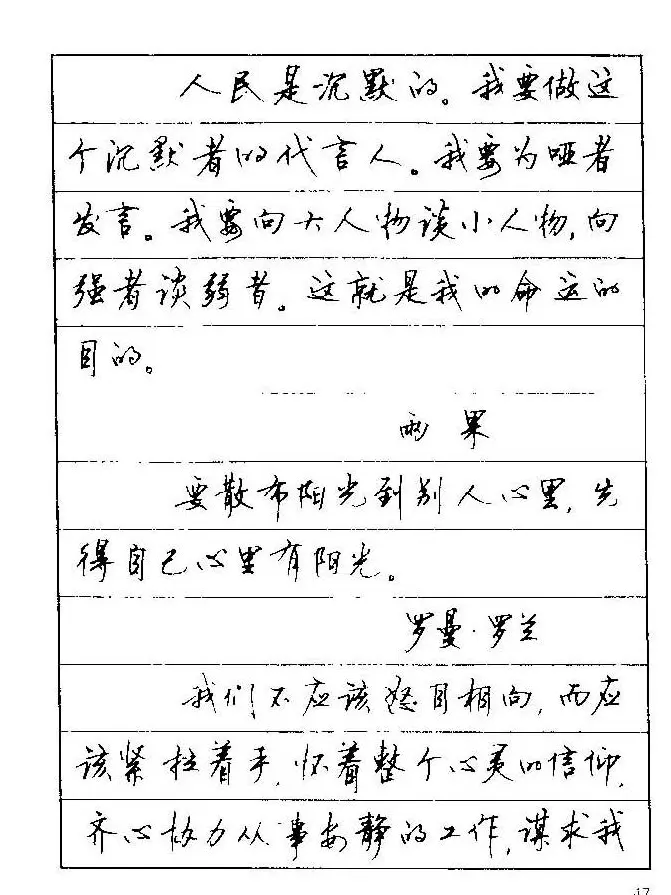 人民是沉默的。我要做这
个沉默者的代言人。我要为哑者
发言。我要向大人物谈小人物,向
强者谈弱者。这就是我的命运的
目的。
雨果
要散布阳光到别人心里,先
得自己心里有阳光。
罗曼·罗兰
我们不应该怒目相向,而应
该紧拉着手,怀着整个心灵的信仰,
齐心协力从事安静的工作,谋求我
17